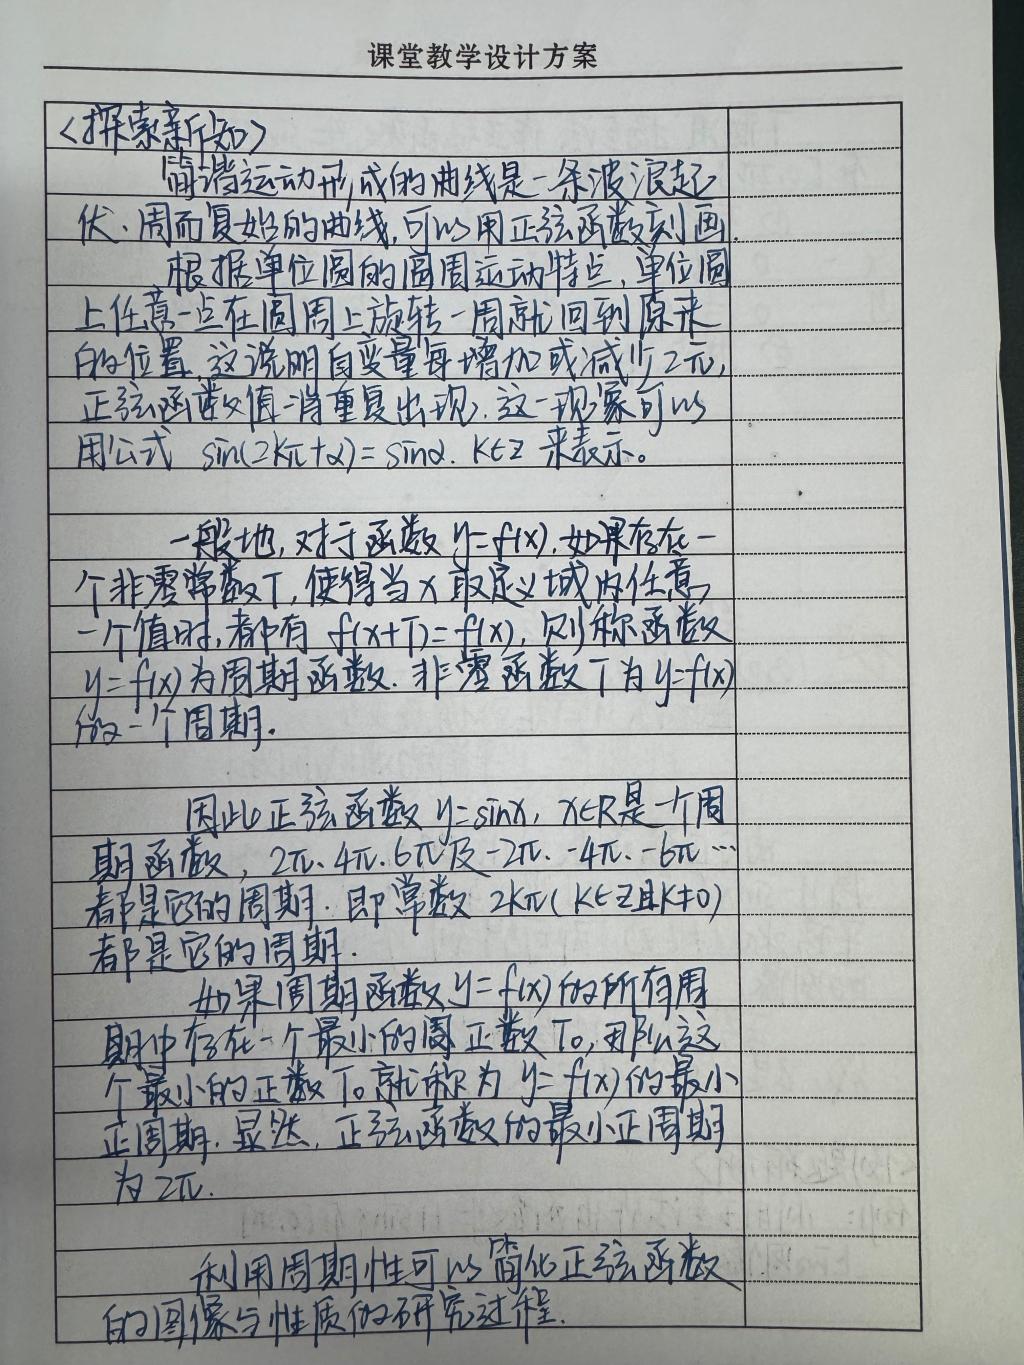 课堂教学设计方案
<探索新知>
简谐运动形成的曲线是一条波浪起
伏、周而复始的曲线,可以用正弦函数刻画.
根据单位圆的圆周运动特点,单位圆
上任意一点在圆周上旋转一周就回到原来
的位置,这说明自变量每增加或减少2π,
正弦函数值将重复出现.这一现象可以
用公式 sin(2kπ+α)=sinα. K∈Z 来表示。
一般地,对于函数 y=f(x),如果存在一
个非零常数T,使得当x取定义域内任意
一个值时,都有 f(x+T)=f(x),则称函数
y=f(x)为周期函数.非零函数T为y=f(x)
的一个周期.
因此正弦函数 y=sinx, x∈R是一个周
期函数, 2π、4π、6π及-2π、-4π、-6π…
都是它的周期.即常数 2kπ(K∈Z且K≠0)
都是它的周期.
如果周期函数y=f(x)的所有周
期中存在一个最小的周正数T₀,那么这
个最小的正数T₀就称为 y=f(x)的最小
正周期.显然,正弦函数的最小正周期
为2π.
利用周期性可以简化正弦函数
的图像与性质的研究过程.